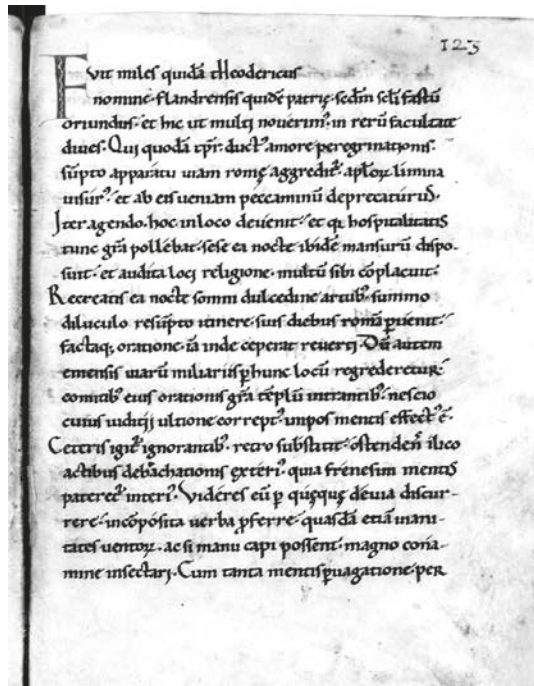 123
Fuit miles quidā tHeodericus
nomine · flandrensis quidē patrię · sedm̄ sclī fastū
oriundus · et hic ut multi nouerim᾿ in rerū facultate
diues. Qui quodā tp̄r · duct᾿ amore peregrinationis ·
sūpto apparatu uiam romę aggredit᾿ · apl̄oꝝ limina
uisur᾿ · et ab eis ueniam peccaminū deprecaturus.
Iter agendo · hoc in loco deuenit · et qa hospitalitatis
tunc grā pollebat · sese ea nocte ibidē mansurū dispo-
suit · et audita loci religione · multū sibi cōplacuit ·
Recreatis ea nocte somni dulcedine artub᾿ · summo
diluculo resūpto itinere · suis diebus romā ꝑuenit ·
factaq; oratione · iā inde ceperat reuerti. Dū autem
emensis uiarū miliariis ꝑ hunc locū regrederetur ·
comitib᾿ eius orationis grā tēplū intrantib᾿ · nescio
cuius uiditij ultione corrept᾿ · inpos mentis effect᾿ ē.
Ceteris igit᾿ ignorantib᾿ · retro substitit · ostendens ilico
actibus debachationis exteri᾿ · quia frenesim mentis
pateret᾿ interi᾿. Videres eū ꝑ quęquę deuia discur-
rere · incōposita uerba ꝓferre · quasdā etiā inani-
tates uentoꝝ · ac si manu capi possent · magno cona-
mine insectari. Cum tanta mentis ꝑuagatione · per